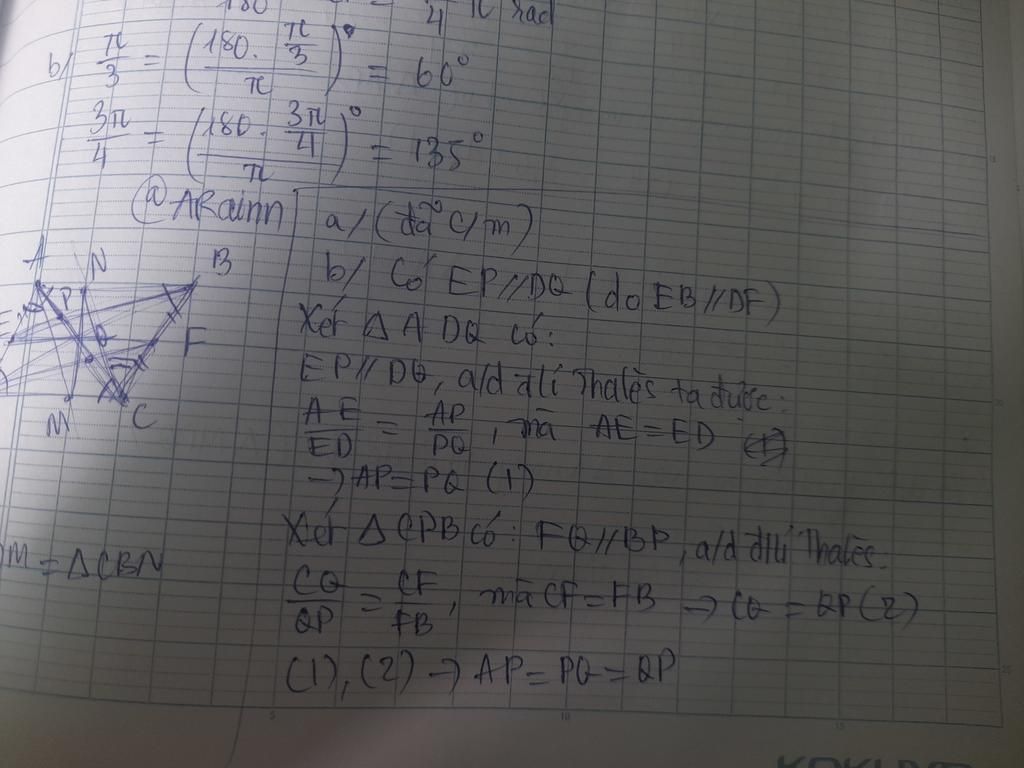 180 4 π rad
b/ π/3 = (180 . π/3 / π)° = 60°
3π/4 = (180 . 3π/4 / π)° = 135°
@ARainn
a/ (đã c/m)
A N B
b/ Có EP // DQ (do EB // DF)
E P Q F
Xét Δ A DQ có:
EP // DQ, a/d đlí Thalès ta được:
M C
AE/ED = AP/PQ, mà AE = ED
→ AP = PQ (1)
Xét Δ CPB có: FQ // BP, a/d đlí Thalès.
M = ΔCBN
CQ/QP = CF/FB, mà CF = FB → CQ = QP (2)
(1), (2) → AP = PQ = QP
5 10 15
KOKUYO